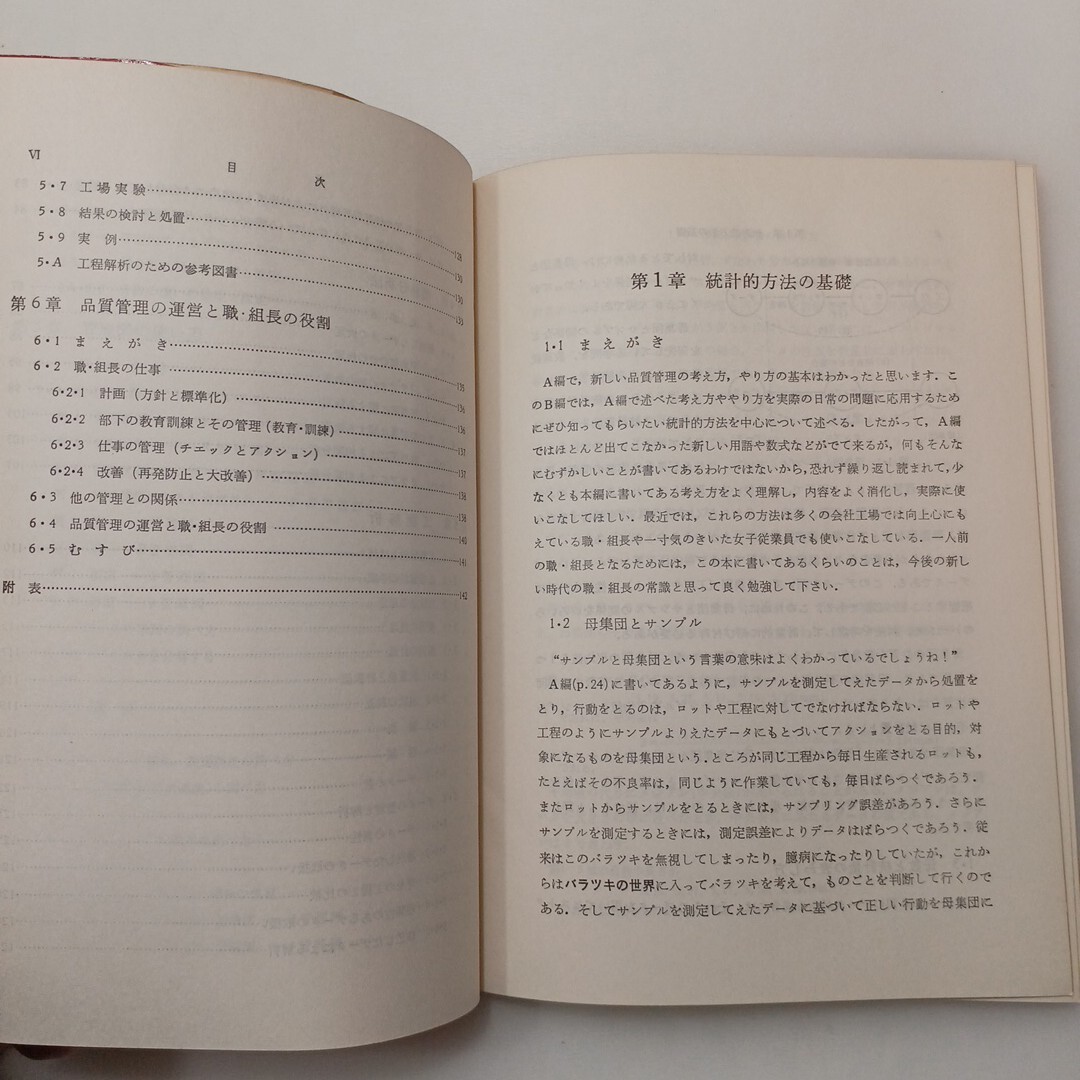 VI
目 次
5・7 工場実験
5・8 結果の検討と処置 128
5・9 実 例 130
5・A 工程解析のための参考図書 130
第6章 品質管理の運営と職・組長の役割 133
6・1 ま え が き
6・2 職・組長の仕事 135
6・2・1 計画（方針と標準化） 136
6・2・2 部下の教育訓練とその管理（教育・訓練） 136
6・2・3 仕事の管理（チエックとアクション） 137
6・2・4 改善（再発防止と大改善） 137
6・3 他の管理との関係 138
6・4 品質管理の運営と職・組長の役割 138
6・5 む す び 140
141
附 表 142
第1章 統計的方法の基礎
1・1 ま え が き
A編で，新しい品質管理の考え方，やり方の基本はわかったと思います．こ
のB編では，A編で述べた考え方ややり方を実際の日常の問題に応用するため
にぜひ知ってもらいたい統計的方法を中心について述べる．したがって，A編
ではほとんど出てこなかった新しい用語や数式などがでて来るが，何もそんな
にむずかしいことが書いてあるわけではないから，恐れず繰り返し読まれて，少
なくとも本編に書いてある考え方をよく理解し，内容をよく消化し，実際に使
いこなしてほしい．最近では，これらの方法は多くの会社工場では向上心にも
えている職・組長や一寸気のきいた女子従業員でも使いこなしている．一人前
の職・組長となるためには，この本に書いてあるくらいのことは，今後の新し
い時代の職・組長の常識と思って良く勉強して下さい．
1・2 母集団とサンプル
“サンプルと母集団という言葉の意味はよくわかっているでしょうね！”
A編(p.24)に書いてあるように，サンプルを測定してえたデータから処置を
とり，行動をとるのは，ロットや工程に対してでなければならない．ロットや
工程のようにサンプルよりえたデータにもとづいてアクションをとる目的，対
象になるものを母集団という．ところが同じ工程から毎日生産されるロットも，
たとえばその不良率は，同じように作業していても，毎日ばらつくであろう．
またロットからサンプルをとるときには，サンプリング誤差があろう．さらに
サンプルを測定するときには，測定誤差によりデータはばらつくであろう．従
来はこのバラツキを無視してしまったり，臆病になったりしていたが，これか
らはバラツキの世界に入ってバラツキを考えて，ものごとを判断して行くので
ある．そしてサンプルを測定してえたデータに基づいて正しい行動を母集団に